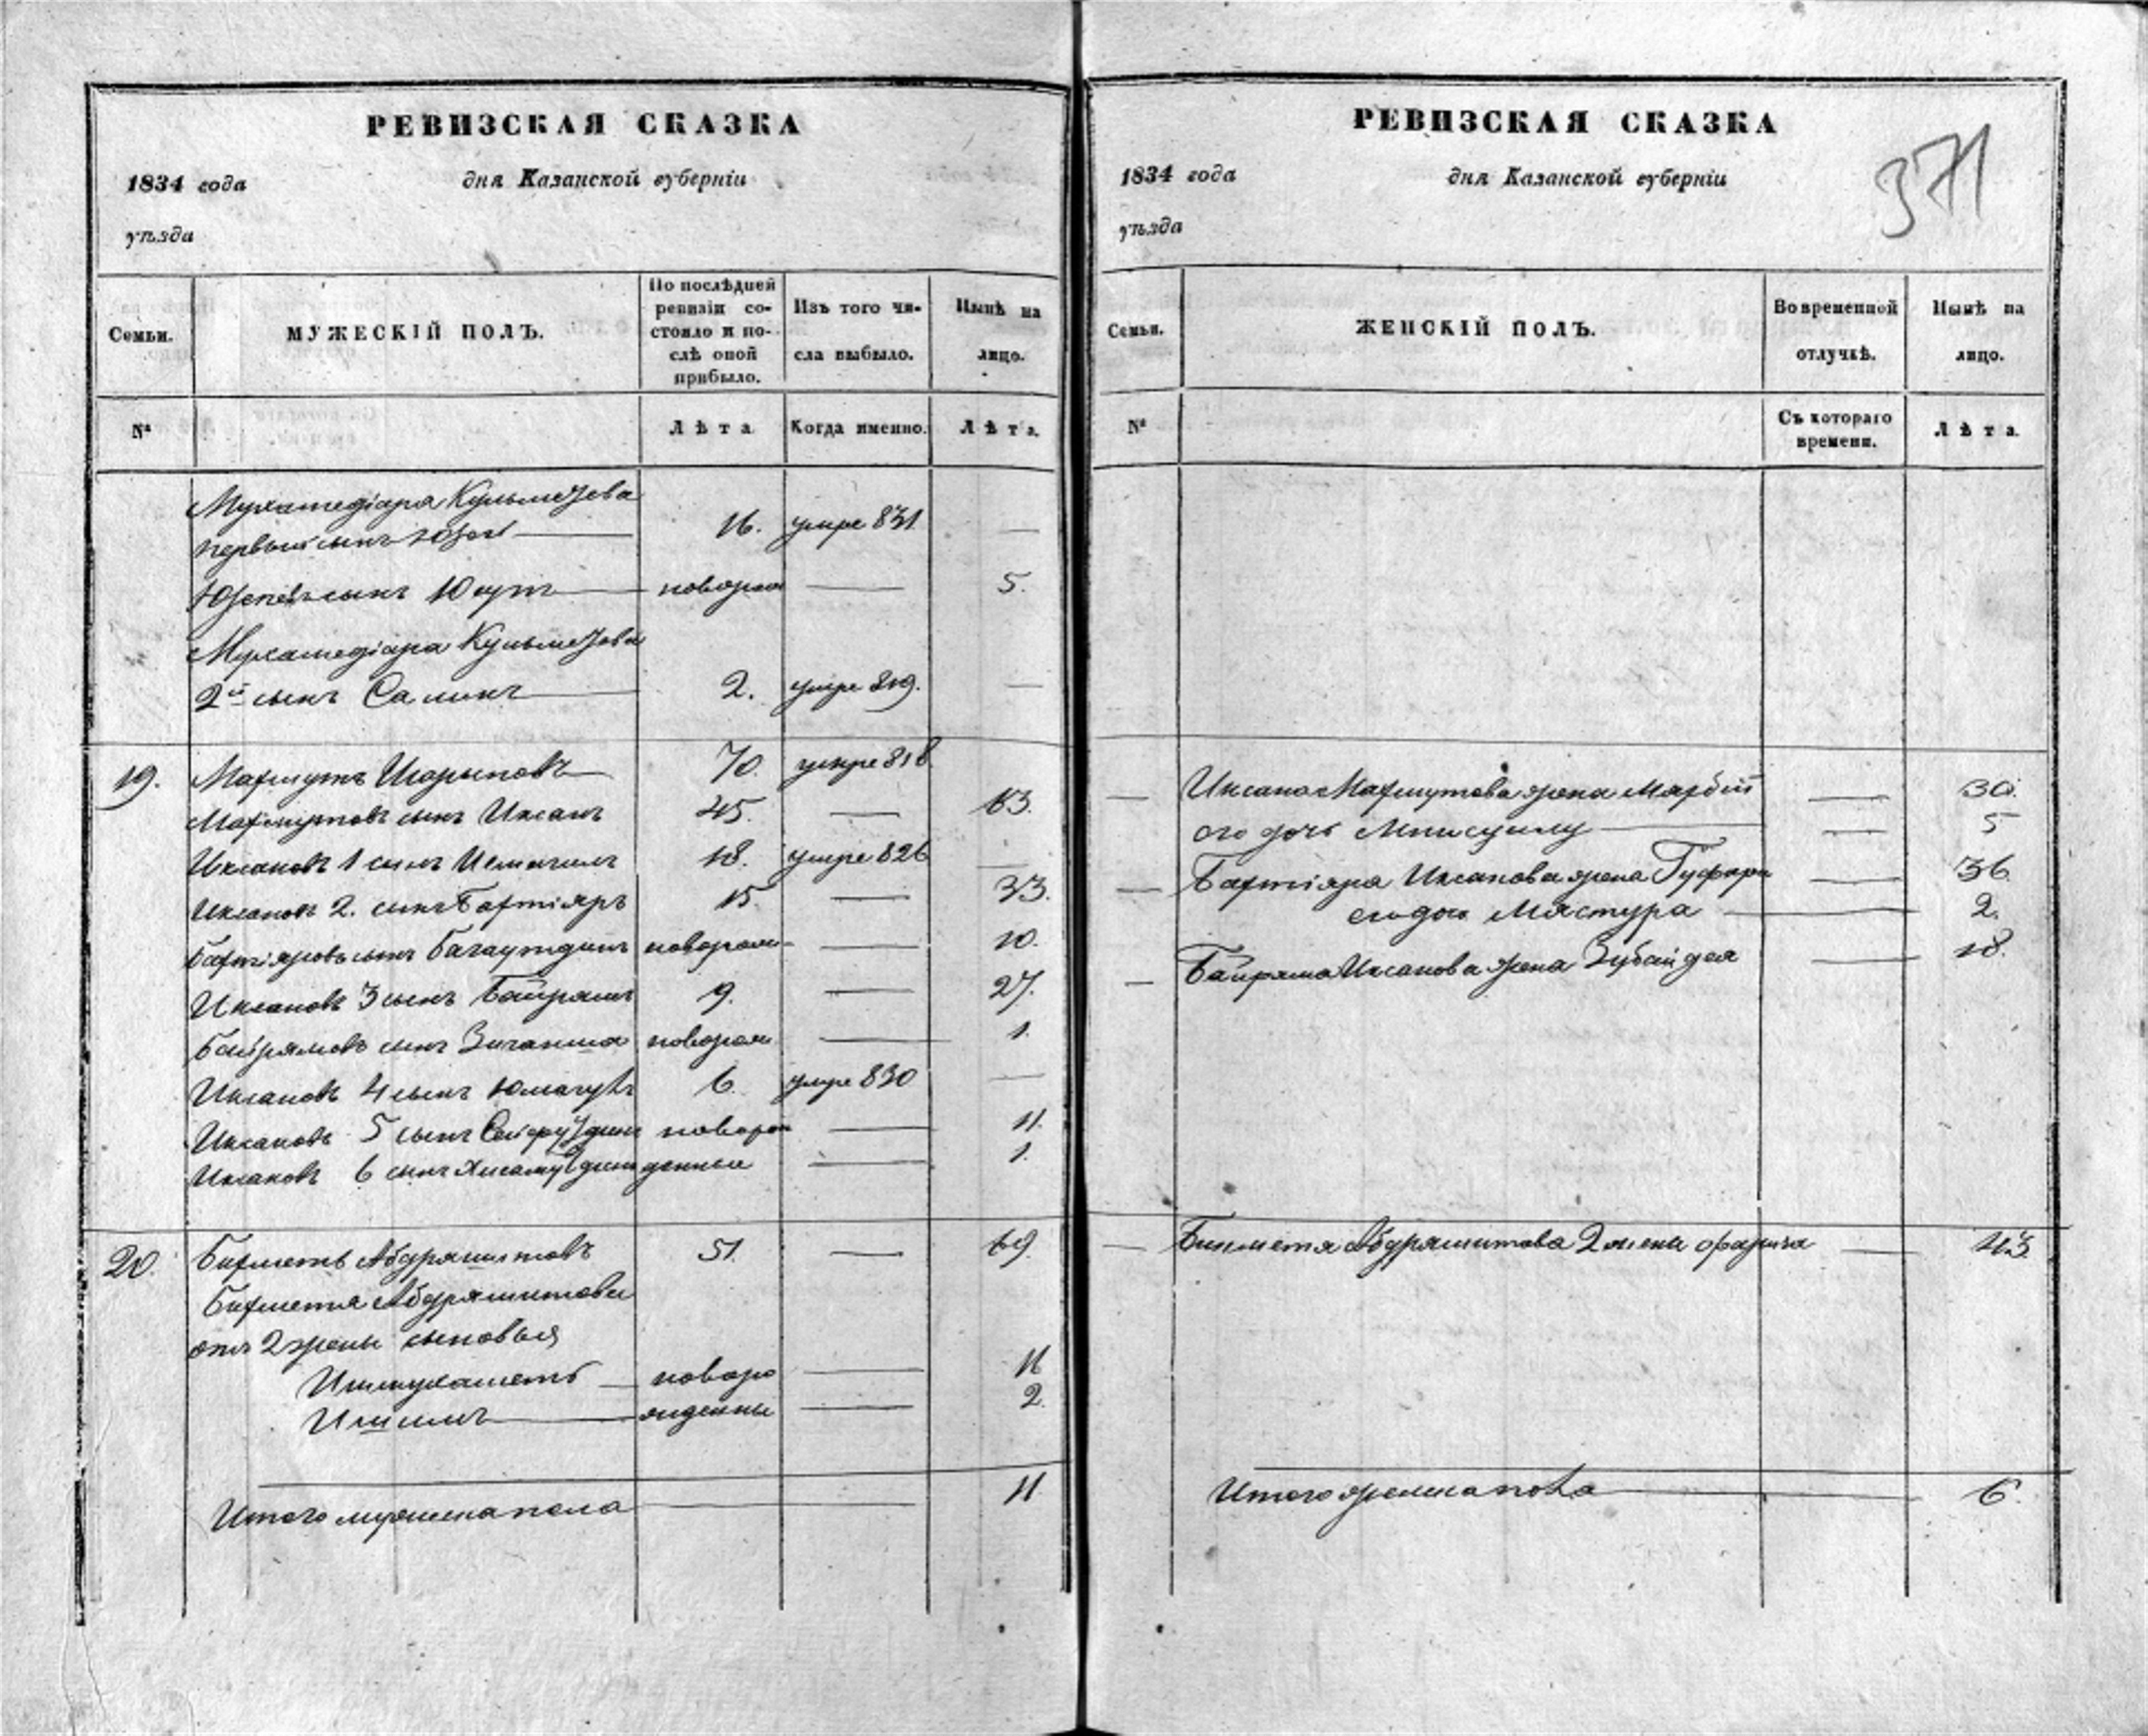 РЕВИЗСКАЯ СКАЗКА
1834 года дня Казанской губерніи
уѣзда
Семьи. МУЖЕСКІЙ ПОЛЪ. По послѣдней ревизіи состояло и послѣ оной прибыло. Изъ того числа выбыло. Нынѣ на лицо.
№ Лѣта Когда именно. Лѣта.
Мухамедіара Кульметева
первый сынъ 16. умре 831 —
сынъ Юсупъ новорож — 5.
Мухамедіара Кульметева
2й сынъ Салимъ 2. умре 819. —
19. Махмутъ Шарыповъ 70. умре 818
Махмутовъ сынъ Иксанъ 45. — 63.
Иксановъ 1 сынъ Исмагилъ 18. умре 826 —
Иксановъ 2. сынъ Бахтіяръ 15. — 33.
Бахтіяровъ сынъ Багаутдинъ новорож — 10.
Иксановъ 3 сынъ Байрамъ 9. — 27.
Байрямовъ сынъ Зиганша новорож — 1.
Иксановъ 4 сынъ 6. умре 830 —
Иксановъ 5 сынъ Сейфутдинъ новорож — 11.
Иксановъ 6 сынъ Хисамутдинъ денные — 1.
20. Бикметь Абдряшитовъ 51. — 69.
Бикметя Абдряшитова
отъ 2 жены сыновья
Ишмухаметь — новоро — 11
Ишимъ — жденны — 2
Итого мужеска пола — 11
РЕВИЗСКАЯ СКАЗКА
371
1834 года дня Казанской губерніи
уѣзда
Семьи. ЖЕНСКІЙ ПОЛЪ. Во временной отлучкѣ. Нынѣ на лицо.
№ Съ котораго времени. Лѣта.
— Иксана Махмутова жена — 30.
его дочь — 5
— Бахтіяра Иксанова жена — 36
его дочь Мястура — 2.
— Байряма Иксанова жена Зубайдая — 18.
— Бикметя Абдряшитова 2 жена — 43
Итого женска пола — 6.